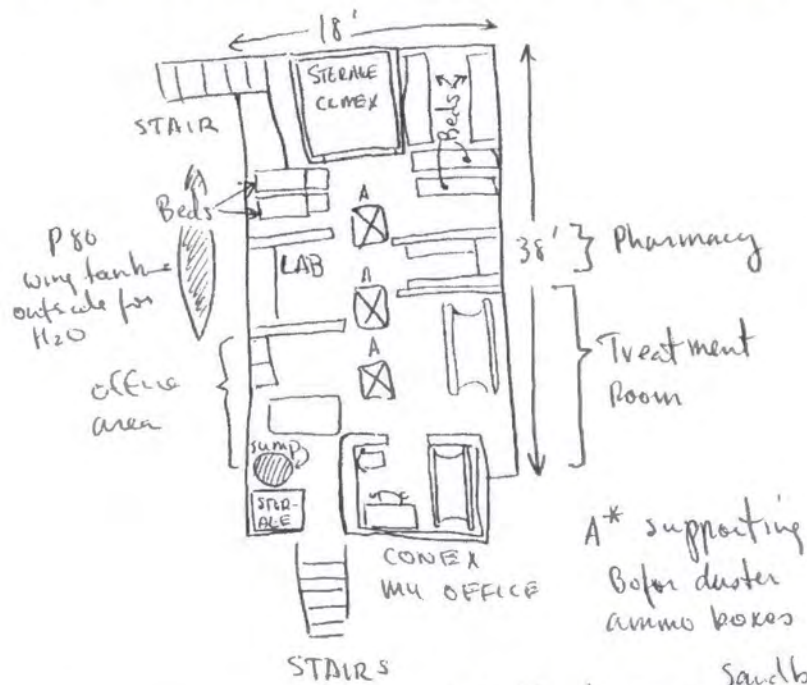 18'
STORAGE
CONEX
Beds
STAIR
Beds
A
P80
wing tank
outside for
H2O
LAB
38'
Pharmacy
A
A
Treatment
Room
office
area
sump
STOR-
AGE
CONEX
MY OFFICE
A* supporting
Bofor duster
ammo boxes
STAIRS